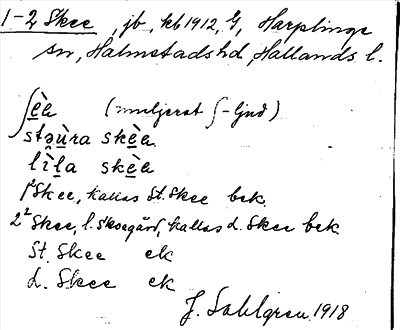 1-2 Skee, jb, kb 1912, G, Harplinge
sn, Halmstads hd, Hallands l.
ʃèa (muljerat ʃ-ljud)
stəùra skèa
lìla skèa
1² Skee, kallas St. Skee bek.
2² Skee, l. Skeegård, kallas L. Skee bek.
St. Skee ek
L. Skee ek
J. Sahlgren 1918